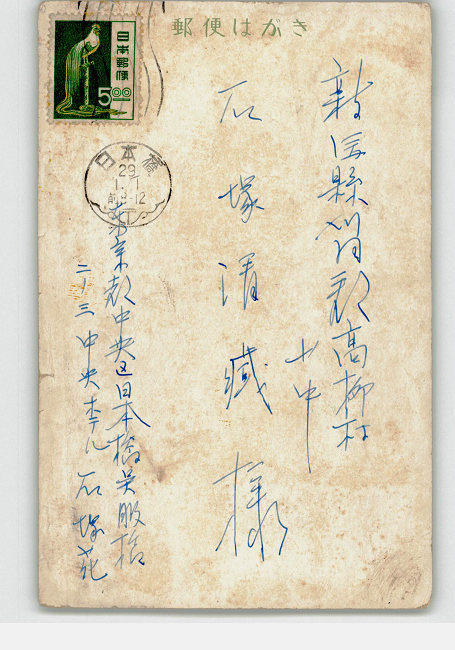 郵便はがき
日本郵便
5.00
日本橋
29
1.1
前8-12
新潟縣刈羽郡高柳村
山中
石塚清藏様
東京都中央区日本橋呉服橋
二ノ三 中央ホテル 石塚